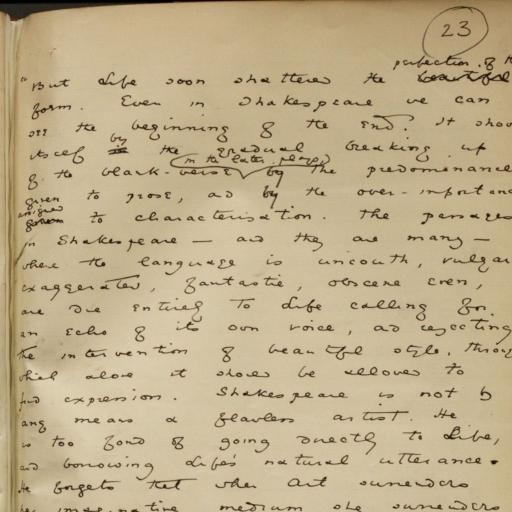 23
perfection of th
"But Life soon shattered the beautiful
form. Even in Shakespeare we can
see the beginning of the end. It show
itself by the gradual breaking up
(in the later plays)
of the blank-verse by the predominance
given to prose, and by the over-importance
assigned
given to characterisation. The passages
in Shakespeare — and they are many —
where the language is uncouth, vulgar
exaggerated, fantastic, obscene even,
are due entirely to Life calling for
an echo of its own voice, and rejecting
the intervention of beautiful style, throug
which alone it should be allowed to
find expression. Shakespeare is not by
any means a flawless artist. He
is too fond of going directly to Life,
and borrowing Life's natural utterance.
He forgets that when Art surrenders
her imaginative medium she surrenders